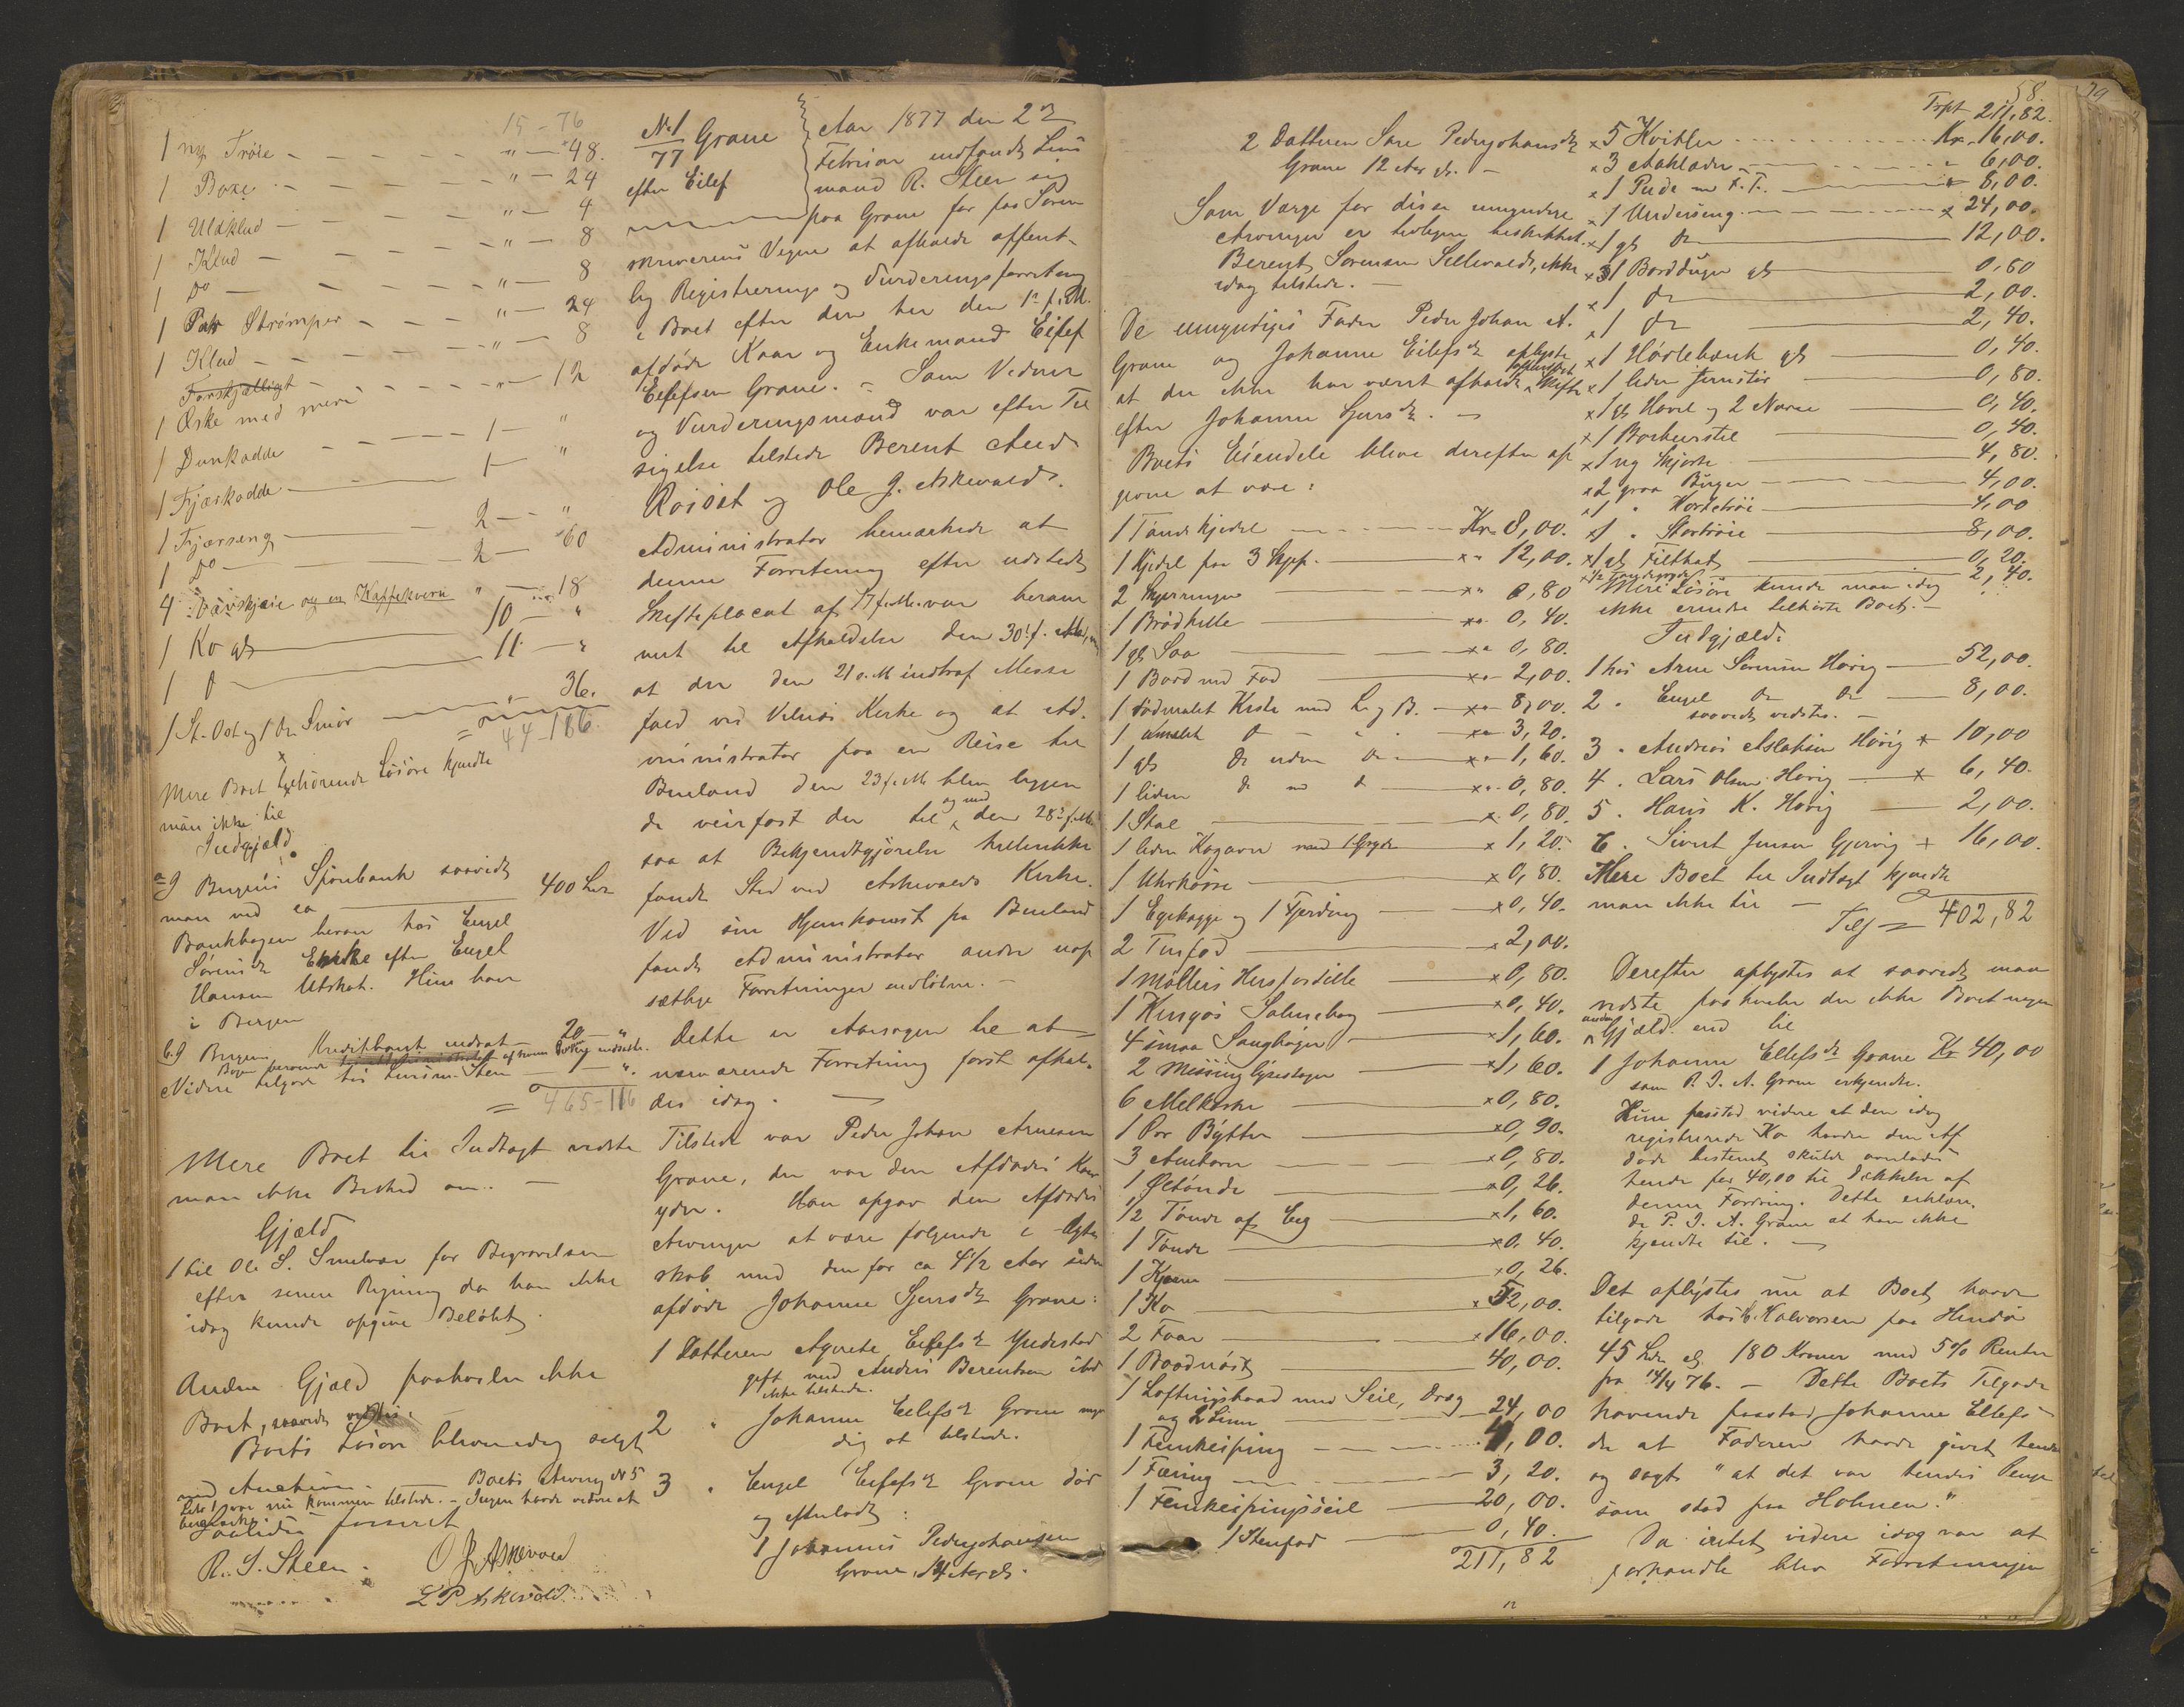 15-76
1 ny Trøie - - - " - 48.
1 Boxe - - - " - 24
1 Uldklud - - - " - 4
1 Klud - - - " - 8
1 Do - - - " - 8
1 Par Strømper - - - " - 24
1 Klud - - - " - 8
Forskjelligt
1 Æske med mere - - - " - 12
1 Dunkodde - - - 1 - "
1 Fjærkodde - 1 - "
1 Fjærseng - 2 - "
1 Do - 2 - 60
4 og en Kaffekvern " - 18
1 Ko gl 10 - "
1 D 11 - "
1 St. Ost og 1 Do Smør " - 36.
= 44-186.
Mere Boet tilhørende Løsøre kjendte
man ikke til
Indgjæld
a) I Bergens Sparebank saavidt
man ved ca 400 Kr
Bankbogen beror hos Engel
Sørensdr Enke efter Engel
Hansen Utskot. Hun bor
i Bergen
b) I Bergens Kreditbank indsat 20 - "
Videre tilgode hos
= 465-116
Mere Boet til Indtægt vidste
man ikke Besked om. -
Gjæld
1 til Ole S. Smelvær for Begravelsen
efter senere Regning da han ikke
idag kunde opgive Beløbet.
Anden Gjæld paahviler ikke
Boet, saavidt vidstes.
Boets Løsøre blev idag solgt
ved Auction. - Boets Arving No 5
var nu kommen tilstede. - Ingen havde videre at
forrret
R. S. Steen. O J Askevold
L P Askevold
No 1/77 Grane
efter Eilef
Aar 1877 den 2d
Februar indfandt Lens
mand R. Steen sig
paa Grane for paa Soren
skriverens Vegne at afholde offent-
lig Registrerings og Vurderingsforretning
i Boet efter den her den 1ste f. M.
afdøde Kaar og Enkemand Eilef
Eilefsen Grane. - Som Vidner
og Vurderingsmænd var efter Til
sigelse tilstede Berent And
Röiset og Ole J. Askevold.
Administrator bemærkede at
denne Forretning efter udstedt
Skifteplacat af 17 f. M. var beram
met til Afholdelse den 30 f. M.,
at der den 21 s. M indtraf Messe
fald ved Vilnæs Kirke og at Ad.
ministrator paa en Reise til
Bueland den 23 f. M blev liggen
de veirfast der til og med den 28de f. M
saa at Bekjendtgjörelse hellerikke
fandt Sted ved Askevolds Kirke.
Ved sin Hjemkomst fra Bueland
fandt Administrator andre uop
sættlige Forretninger anløbne. -
Dette er Aarsagen til at
nærværende Forretning først afhol-
des idag. -
Tilstede var Peder Johan Arnesen
Grane, der var den Afdødes Kaar
yder. Han opgav den Afdødes
Arvinger at være følgende i Ægte
skab med den for ca 4 1/2 Aar siden
afdøde Johanne Sjursdr Grane:
1 Datteren Agnete Eilefsdr Yndestad
gift med Andreas Berentsen ibd
ikke tilstede.
2 " Johanne Eilefsdr Grane myn
dig og tilstede.
3 " Engel Eilefsdr Grane död
og efterladt:
1 Johannes Pederjohansen
Grane, 14 Aar gl.
2 Datteren Sare Pederjohansdr
Grane 12 Aar gl. -
Som Værge for disse umyndige
Arvinger er tidligere beskikket
Berent Sørensen Sellevold, ikke
idag tilstede. -
De umyndiges Fader Peder Johan A.
Grane og Johanne Eilefsdr oplyste
at der ikke har været afholdt Skifte
efter Johanne Sjursdr. -
Boets Eiendele bleve derefter op
givne at være:
1 Tøndekjedel - - - Kr. 8,00.
1 Kjedel paa 3 Skjep. x " 12,00.
2 x " 0,80
1 Brødhelle x " 0,40.
1 gl Saa x " 0,80.
1 Bord med Fod x " 2,00.
1 rødmalet Kiste med L og B. x " 8,00.
1 umalet D x " 3,20.
1 gl Do uden Do x " 1,60.
1 liden D x " 0,80.
1 Stol x 0,80.
1 liden Kogovn med 1 Gryde x 1,20.
1 Uhrkasse x 0,80.
1 Egekagge og 1 Fjerding x 0,40.
2 x 2,00.
1 Möllers Huspostille x 0,80.
1 Kingos Salmebog x 0,40.
4 smaa Sangbøger x 1,60.
2 Missing Lysestager x 1,60.
6 Melkekar x 0,80.
1 Par Bøtter x 0,90.
3 x 0,80.
1 Øltönde x 0,26.
1/2 Tönde af Eeg x 1,60.
1 Tönde x 0,40.
1 x 0,26.
1 Ko x 52,00.
2 Faar x 16,00.
1 Baadnöst 40,00.
1 Lofteringsbaad med Seil, Drag
og 2 Liner 24,00
1 Femkeiping - - - 4,00.
1 Færing 3,20.
1 Femkeipingsseil 20,00.
1 Stenfad 0,40.
211,82
58.
Trpt 211,82.
x 5 Hvitler Kr. 16,00.
x 3 Aaklæder " 6,00.
x 1 Pude " 8,00.
x 1 Underseng x 24,00.
x 1 gl Do 12,00.
x 1 Borddug gl 0,60
x 1 Do 2,00.
x 1 Do 2,40.
x 1 Hövlebænk gl 0,40.
x 1 liden 0,80.
x 1 gl Høvel og 2 Navre 0,40.
x 1 0,40.
x 1 ny Skjorte 4,80.
x 2 graa Buxer 4,00.
x 1 " 4,00
x 1 " Stortröie 8,00.
x 1 gl Filthat 0,20.
2,40.
Mere Løsøre kunde man idag
ikke erindre tilhørte Boet. -
Indgjæld:
1 hos Arne Sørensen Høvig 52,00.
2 " Engel Do Do 8,00.
saavidt vidstes. -
3 " Andreas Aslaksen Høvig x 10,00
4 " Lars Olsen Høvig x 6,40.
5 " Hans K. Høvig 2,00.
6 " Sivert Jensen Gjervig + 16,00.
Mere Boet til Indtægt kjendte
man ikke til -
Tils = 402,82
Derefter oplystes at saavidt man
vidste paahviler der ikke Boet nogen
anden Gjæld end til
1 Johanne Ellefsdr Grane Kr 40,00
som P. J. A. Grane erkjendte.
Hun paastod videre at den idag
registrerede Ko havde den Af
døde bestemt skulde overlades
hende for 40,00 til Dækkelse af
denne Fordring. Dette erklære
de P. J. A. Grane at han ikke
kjendte til. -
Det oplystes nu at Boet havde
tilgode hos Halvorsen paa
45 Sdr elg. 180 Kroner med 5% Renter
fra 14/4 76. - Dette Boets Tilgode
havende paastod Johanne Ellefs
dr at Faderen havde givet hende
og sagt "at det var hendes Penge
som stod paa Holmen."
Da intet videre idag var at
forhandle blev Forretningen